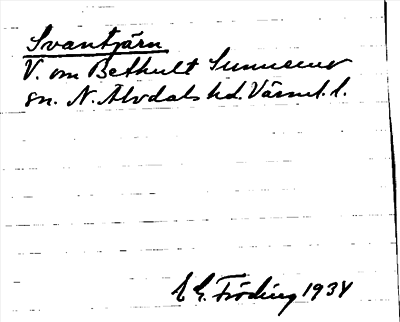 Svantjärn
V. om Bethult Sunnemo
sn. N. Älvdals hd. Värml. l.
E G. Fröding 1934